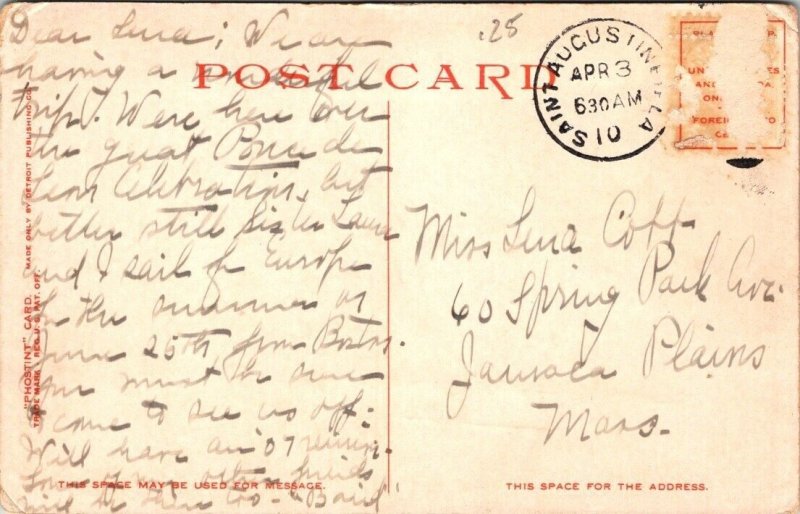 .25
POST CARD
Dear Lena; We are
having a wonderful
trip. Were here over
the great Ponce de
Leon Celebration, but
better still Sister Laura
and I sail for Europe
for the summer on
June 25th, from Boston.
You must be sure
& come to see us off.
Will have an '07 reunion.
Some of my other friends
will be there too -
THIS SPACE MAY BE USED FOR MESSAGE.
"PHOSTINT" CARD. MADE ONLY BY DETROIT PUBLISHING CO.
TRADE MARK REG. U.S. PAT. OFF.
SAINT AUGUSTINE FLA
APR 3
630 AM
10
UN
AND
ON
FOREI
Miss Lena
60 Spring Park Ave.
Jamaica Plains
Mass.
THIS SPACE FOR THE ADDRESS.